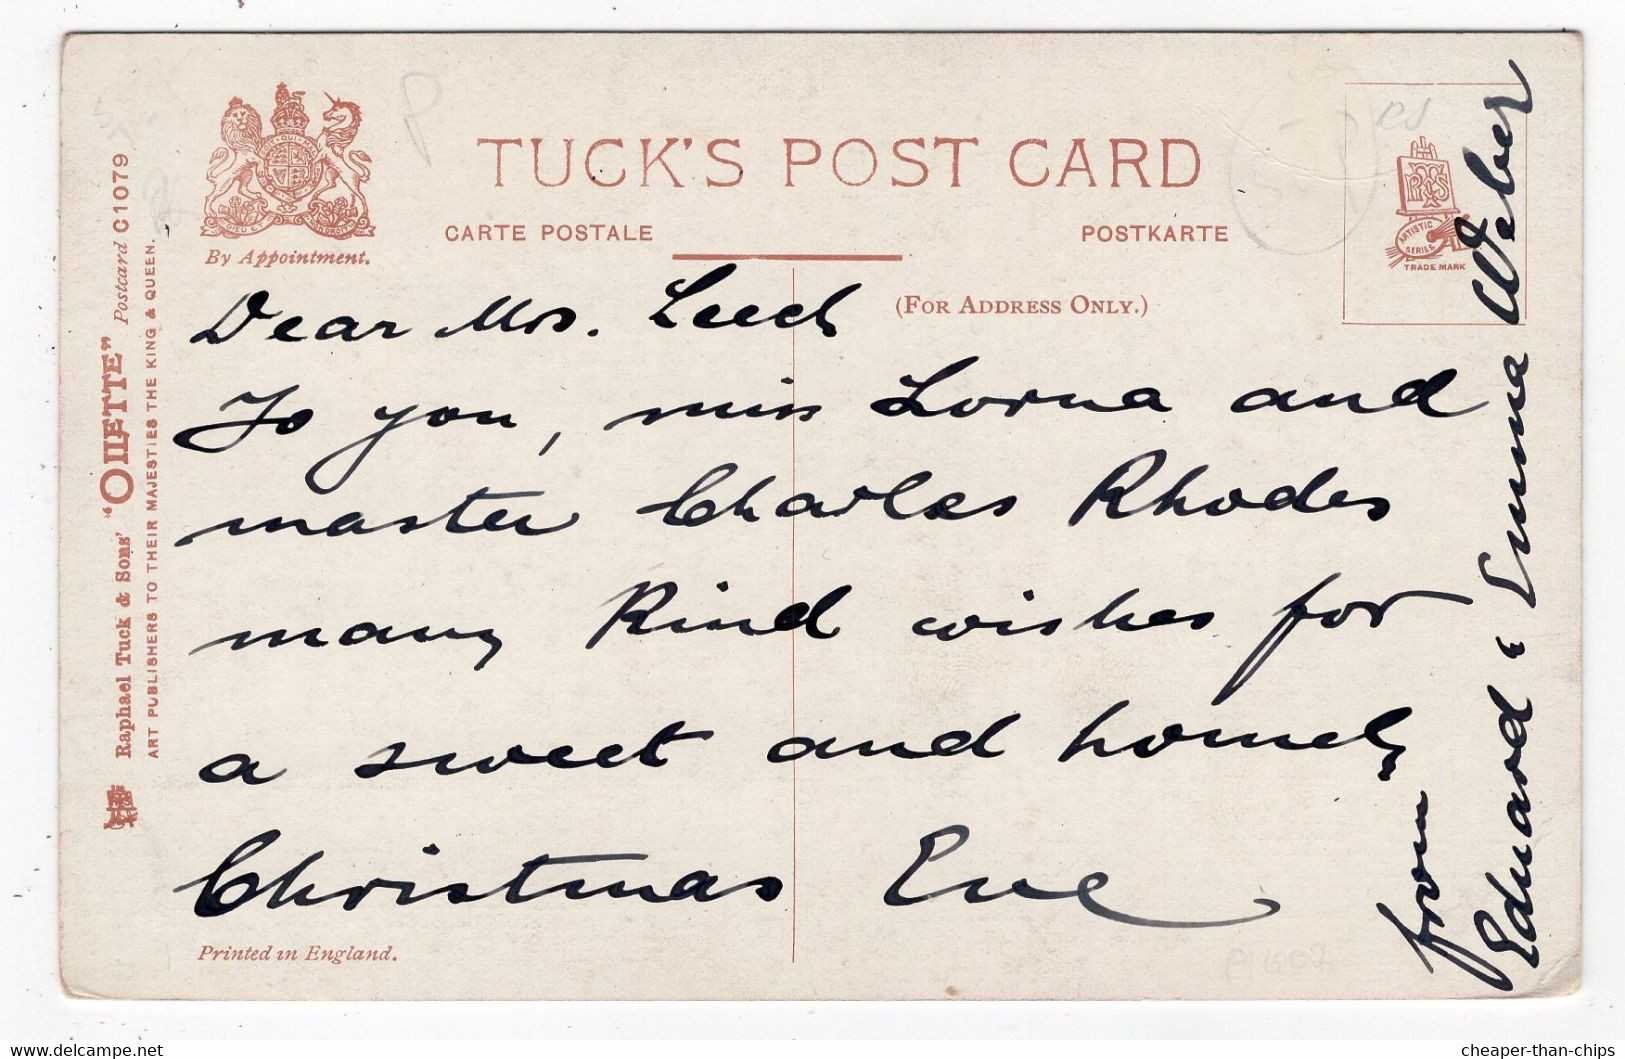 TUCK'S POST CARD
CARTE POSTALE
POSTKARTE
By Appointment.
(FOR ADDRESS ONLY.)
ARTISTIC
SERIES
TRADE MARK
Raphael Tuck & Sons' "OILETTE" Postcard C1079
ART PUBLISHERS TO THEIR MAJESTIES THE KING & QUEEN.
Dear Mrs. Leech
To you, miss Lorna and
master Charles Rhodes
many kind wishes for
a sweet and homely
Christmas Eve
from
Edward & Emma Weber
Printed in England.
www.delcampe.net
cheaper-than-chips